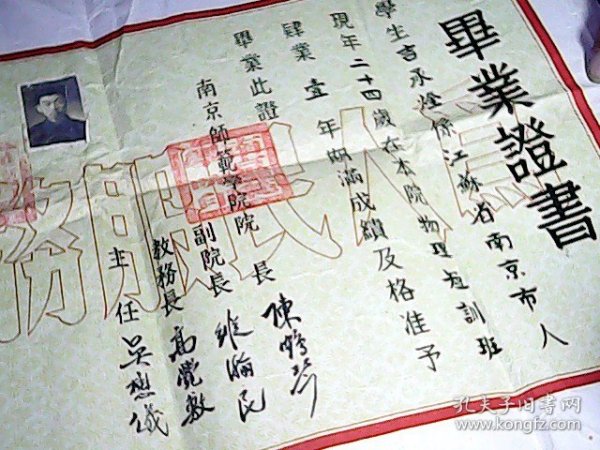 畢業證書
學生言承燈係江蘇省南京市人
現年二十四歲在本院物理短訓班
肄業壹年期滿成績及格准予
畢業此證
南京師範學院院長陳鶴琴
副院長纵瀚民
教務長高覺敷
主任吳懋儀
為人民服務
孔夫子旧书网
www.kongfz.com